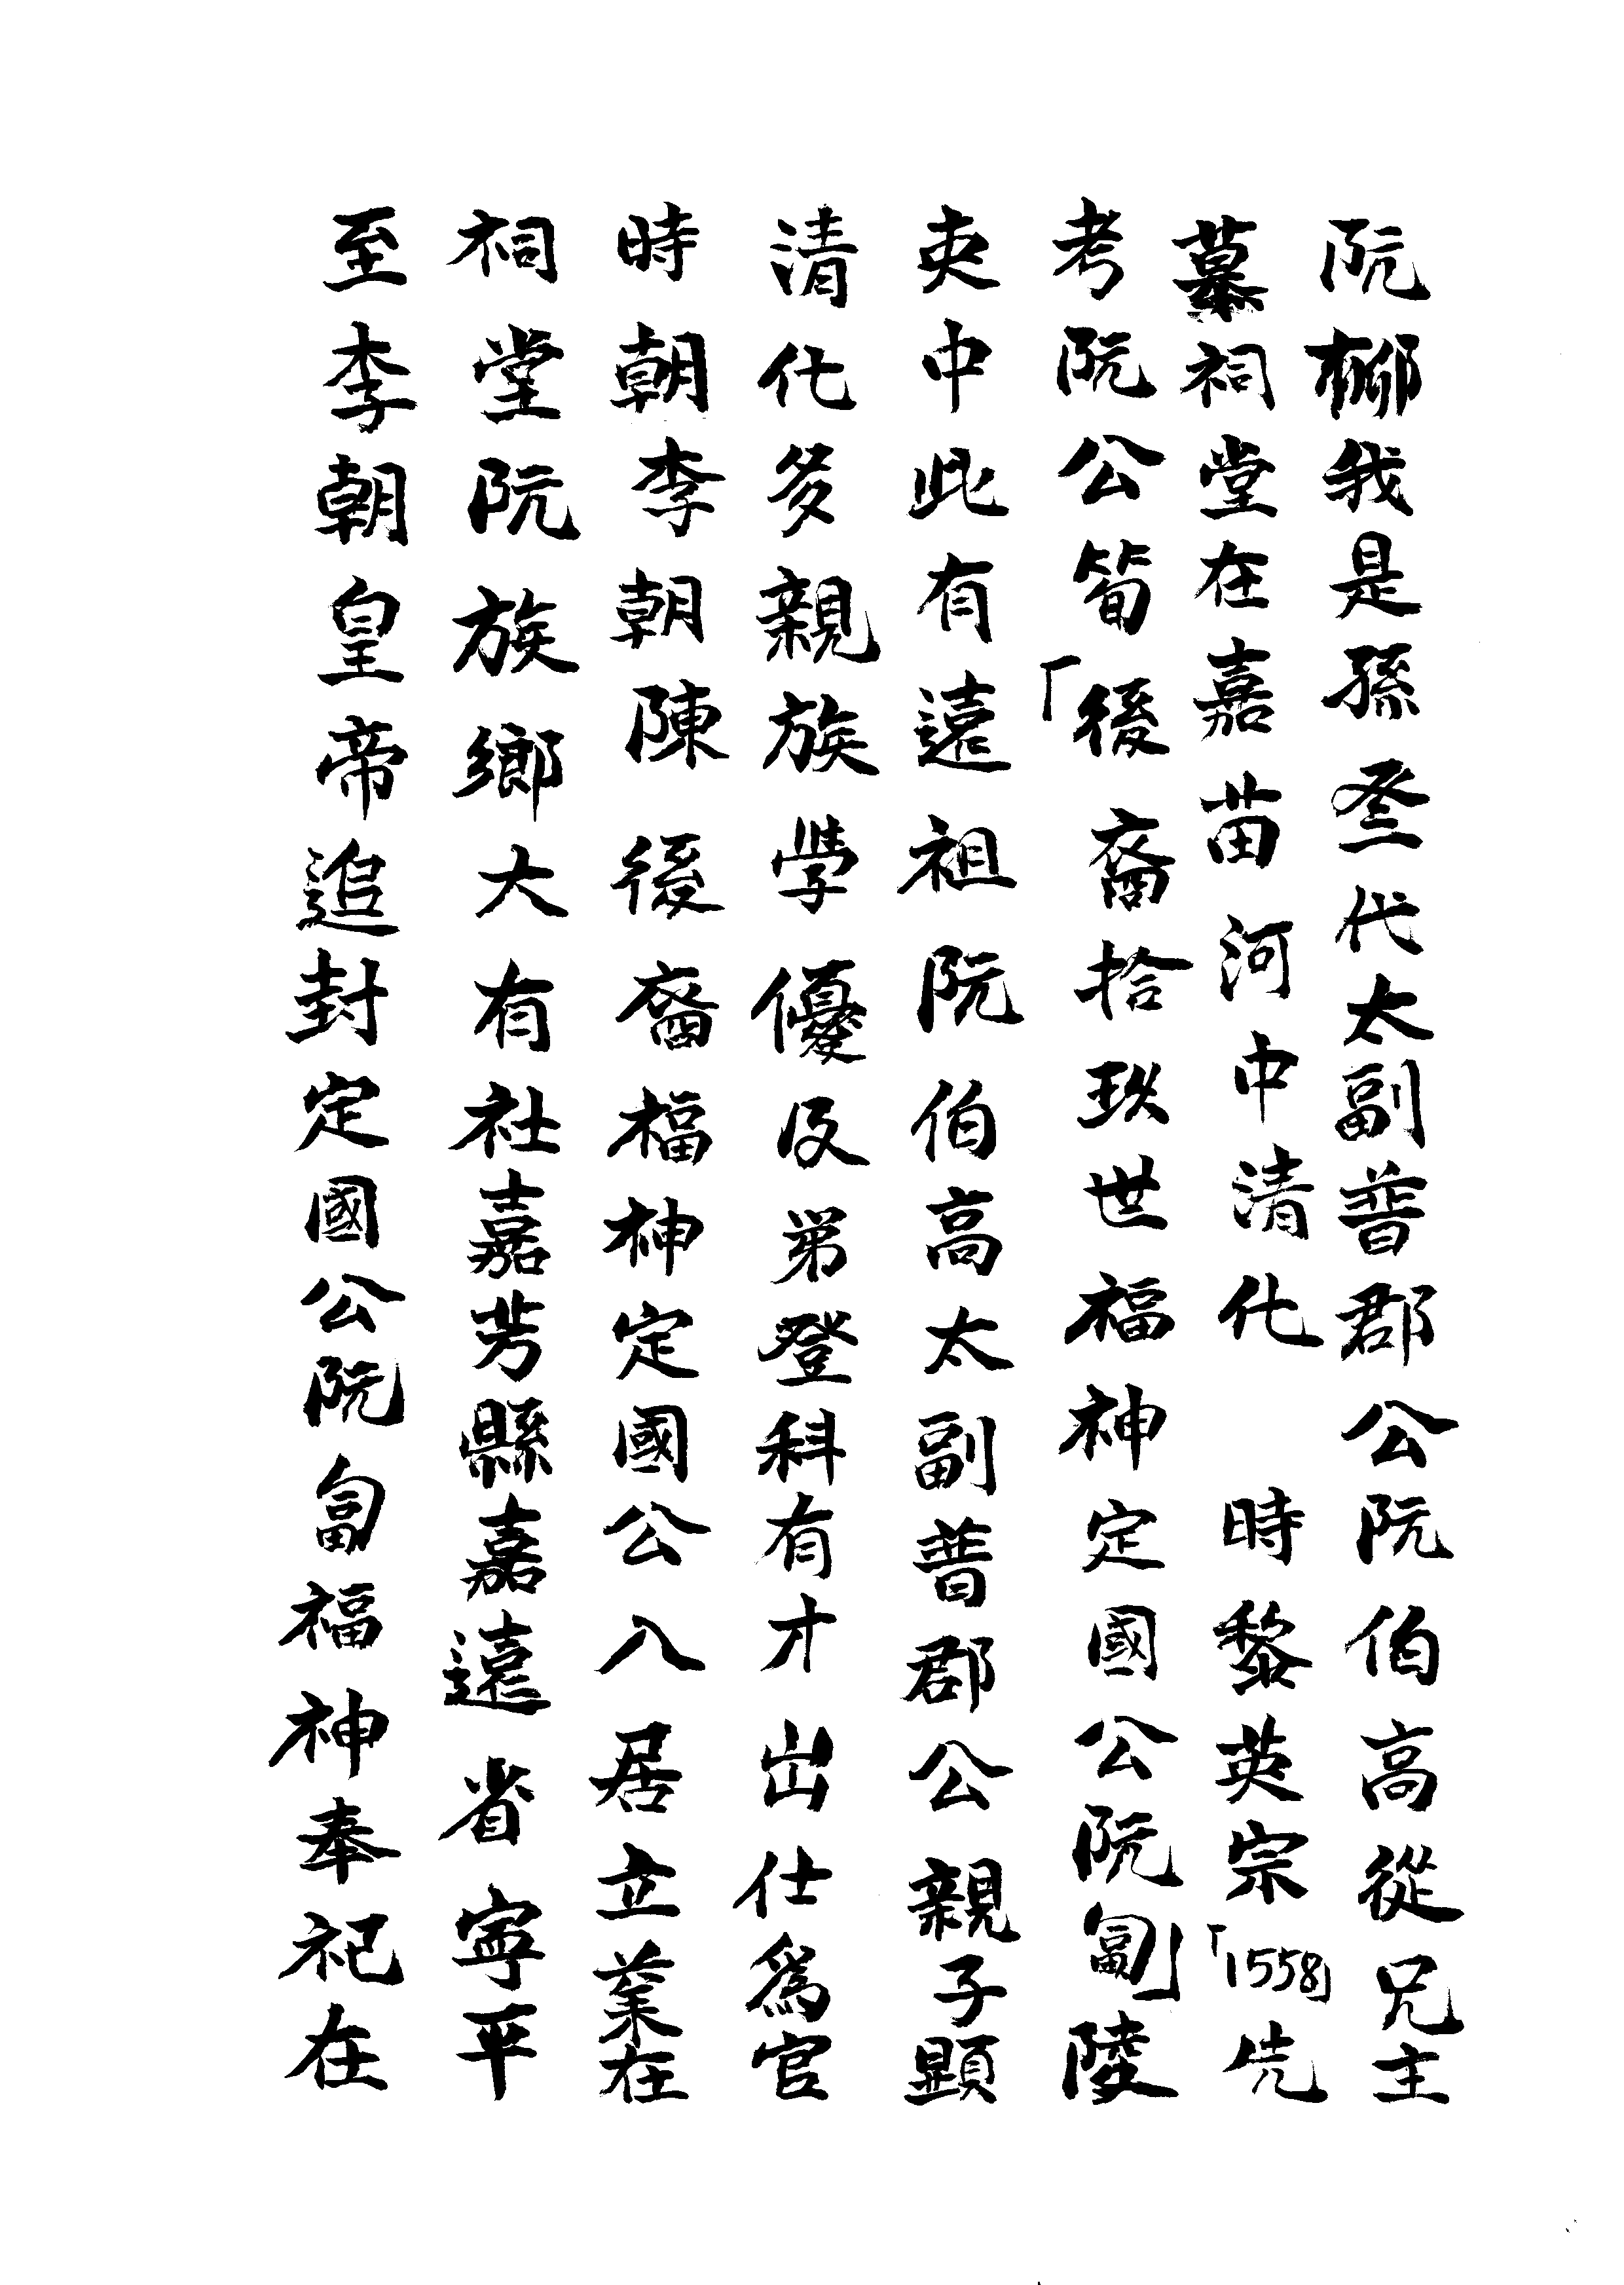 阮㮈我是孫叁代太副普郡公阮伯高從兄主
墓祠堂在嘉苗河中清化 時黎英宗「1558」先
考阮公筍「後裔拾玖世福神定國公阮匐」陵
吏中此有遠祖阮伯高太副普郡公親子顯
清化多親族學優及弟登科有才出仕爲官
時朝李朝陳後裔福神定國公入居立業在
祠堂阮族鄉大有社嘉芳縣嘉遠省寧平
至李朝皇帝追封定國公阮匐福神奉祀在